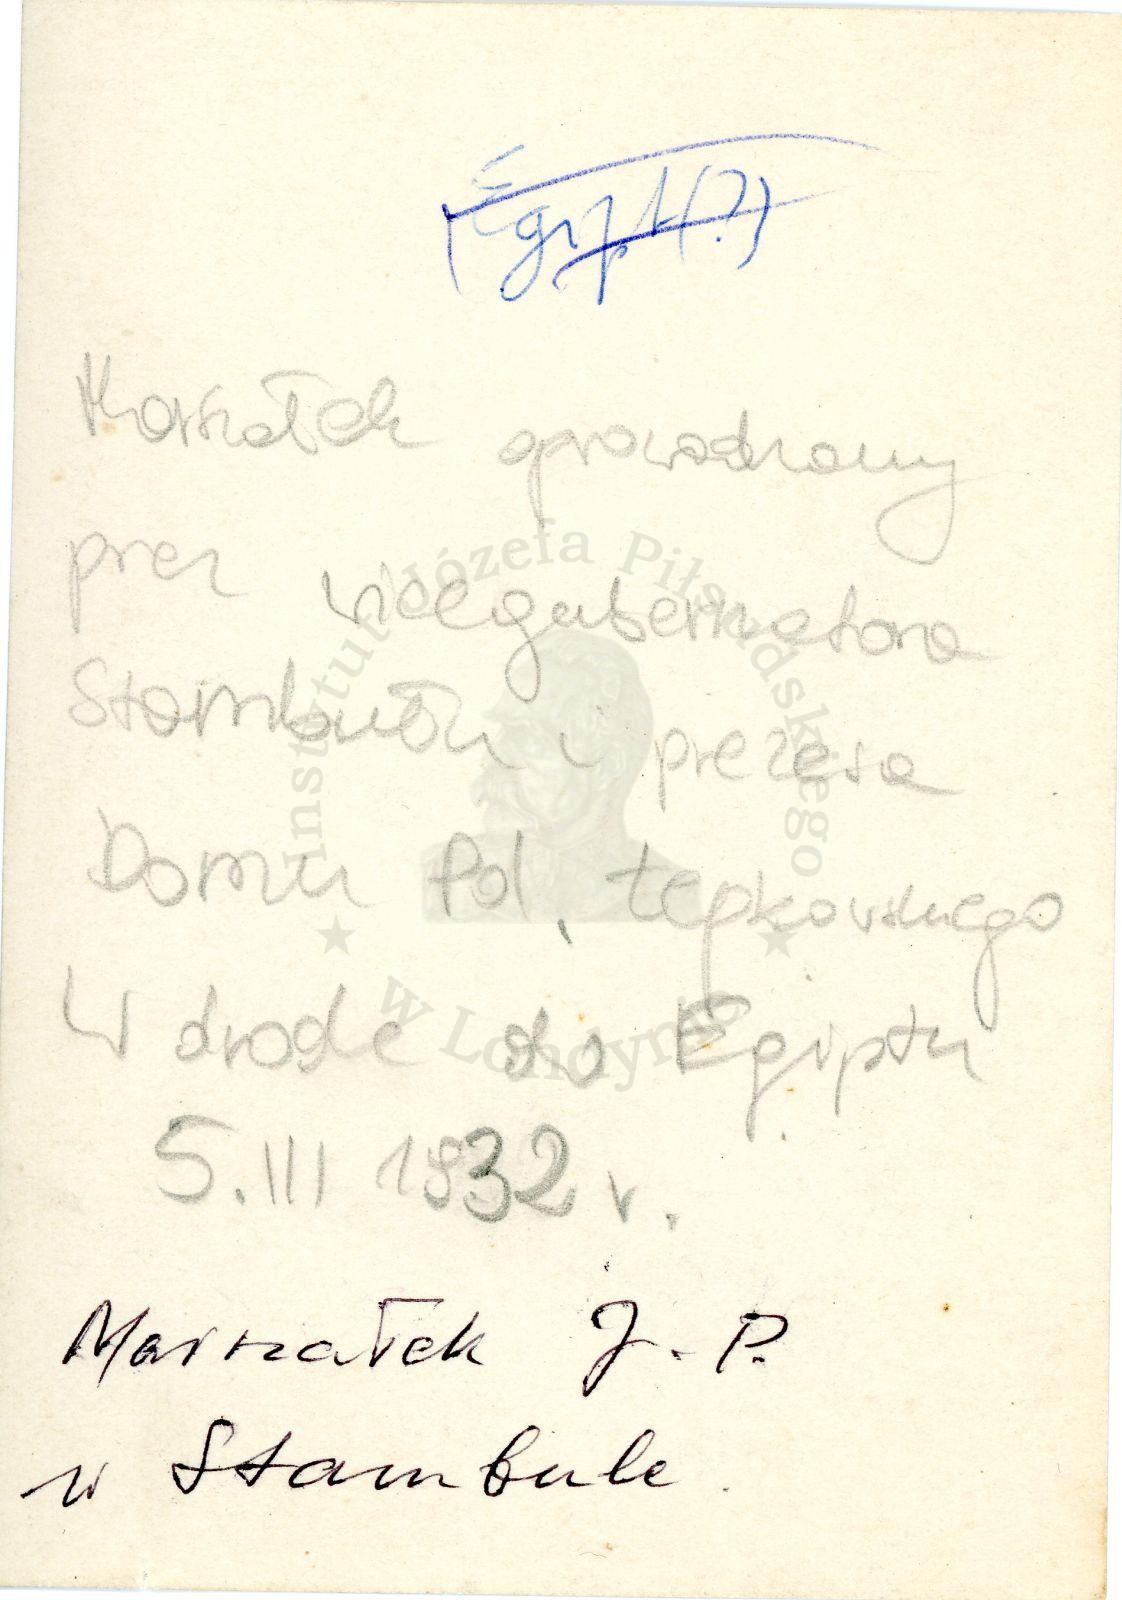 (Egipt(?)
Marszałek oprowadzany
przez wicegubernatora
Stambułu i prezesa
Domu Pol. Łępkowskiego
W drodze do Egiptu
5.III 1932 r.
Marszałek J. P.
w Stambule.
Instytut Józefa Piłsudskiego
w Londynie